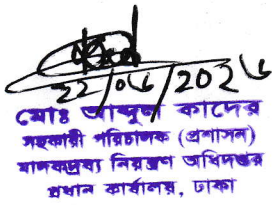 22/06/2026
মোঃ আব্দুল কাদের
সহকারী পরিচালক (প্রশাসন)
মাদকদ্রব্য নিয়ন্ত্রণ অধিদপ্তর
প্রধান কার্যালয়, ঢাকা